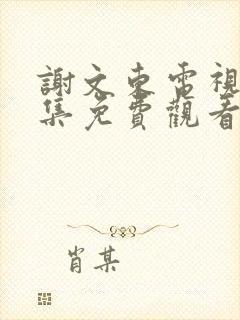 謝文東電視
集免費觀看
肖某